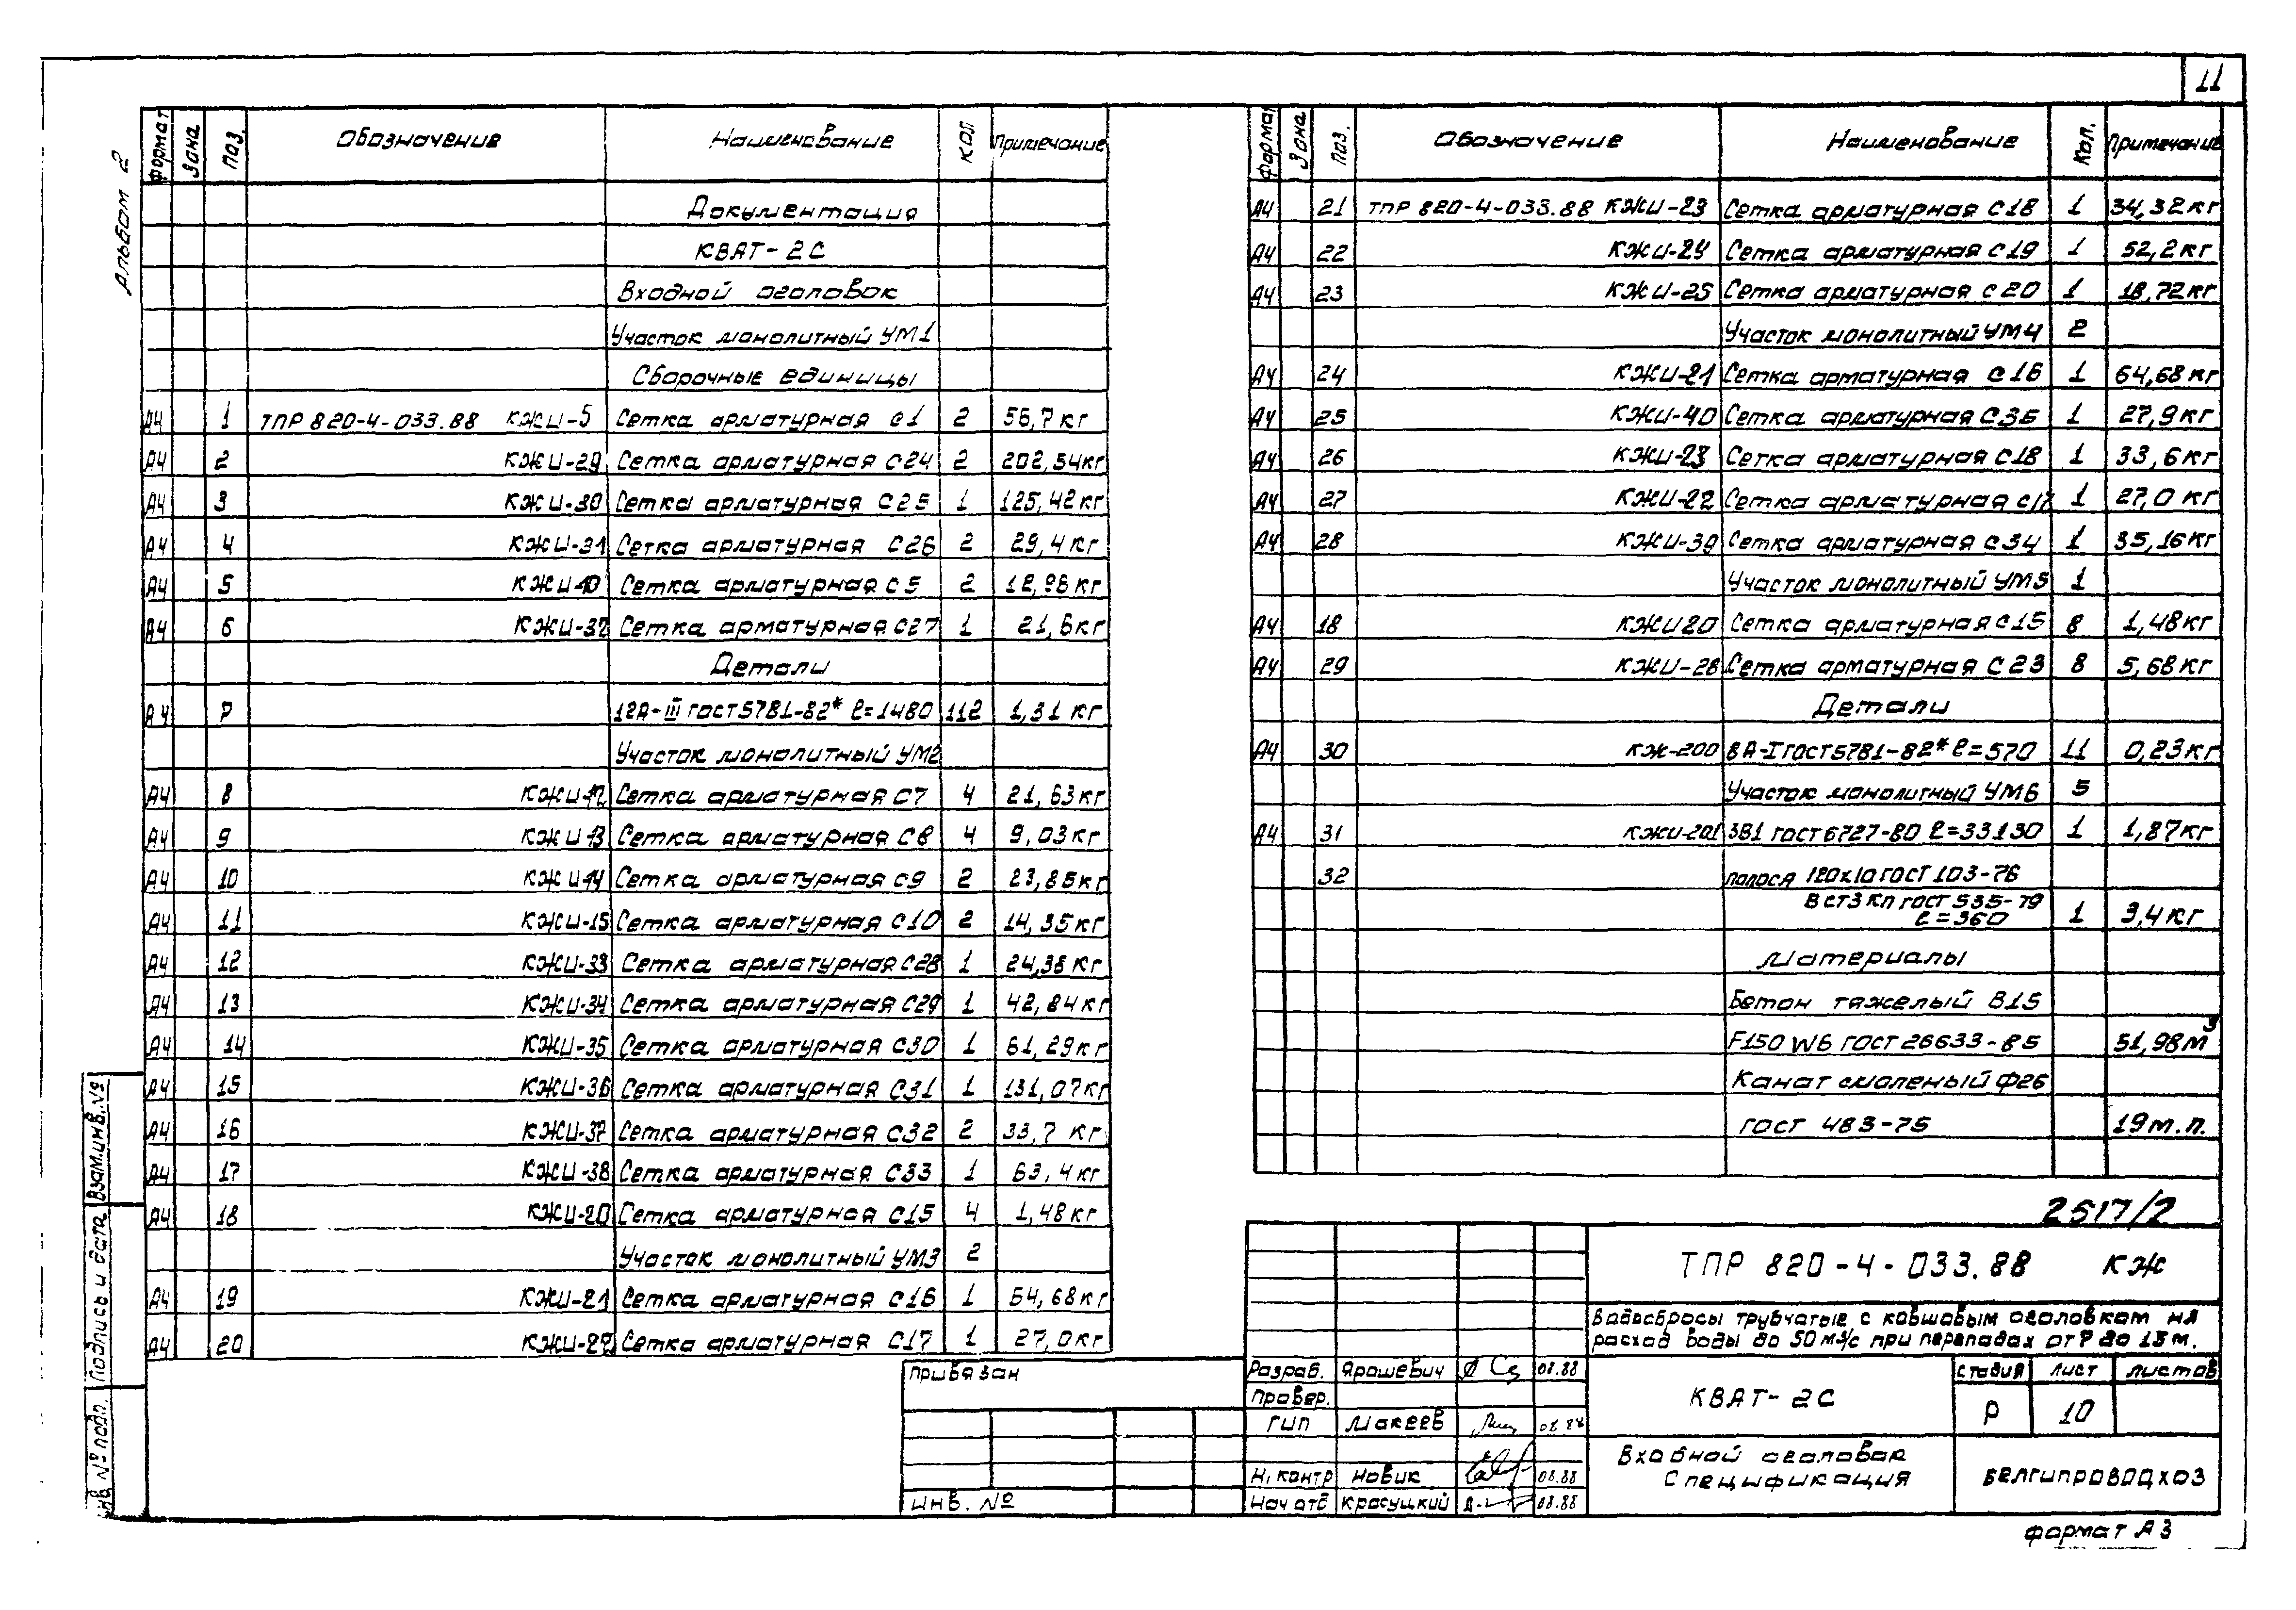 11
Альбом 2
Формат Зона Поз. Обозначение Наименование Кол Примечание
Документация
КВАТ-2С
Входной оголовок
Участок монолитный УМ1
Сборочные единицы
А4 1 ТПР 820-4-033.88 КЖИ-5 Сетка арматурная С1 2 56,7 кг
А4 2 КЖИ-29 Сетка арматурная С24 2 202,54кг
А4 3 КЖИ-30 Сетка арматурная С25 1 125,42кг
А4 4 КЖИ-31 Сетка арматурная С26 2 29,4 кг
А4 5 КЖИ-10 Сетка арматурная С5 2 12,96 кг
А4 6 КЖИ-32 Сетка арматурная С27 1 21,6кг
Детали
А4 7 12А-III ГОСТ 5781-82* ℓ=1480 112 1,31 кг
Участок монолитный УМ2
А4 8 КЖИ-12 Сетка арматурная С7 4 21,63кг
А4 9 КЖИ-13 Сетка арматурная С8 4 9,03кг
А4 10 КЖИ-14 Сетка арматурная С9 2 23,85кг
А4 11 КЖИ-15 Сетка арматурная С10 2 14,35кг
А4 12 КЖИ-33 Сетка арматурная С28 1 24,36 кг
А4 13 КЖИ-34 Сетка арматурная С29 1 42,84кг
А4 14 КЖИ-35 Сетка арматурная С30 1 61,29кг
А4 15 КЖИ-36 Сетка арматурная С31 1 131,07кг
А4 16 КЖИ-37 Сетка арматурная С32 2 33,7 кг
А4 17 КЖИ-38 Сетка арматурная С33 1 63,4кг
А4 18 КЖИ-20 Сетка арматурная С15 4 1,48кг
Участок монолитный УМ3 2
А4 19 КЖИ-21 Сетка арматурная С16 1 64,68кг
А4 20 КЖИ-22 Сетка арматурная С17 1 27,0кг
Формат Зона Поз. Обозначение Наименование Кол. Примечание
А4 21 ТПР 820-4-033.88 КЖИ-23 Сетка арматурная С18 1 34,32кг
А4 22 КЖИ-24 Сетка арматурная С19 1 52,2кг
А4 23 КЖИ-25 Сетка арматурная С20 1 18,72кг
Участок монолитный УМ4 2
А4 24 КЖИ-21 Сетка арматурная С16 1 64,68кг
А4 25 КЖИ-40 Сетка арматурная С35 1 27,9кг
А4 26 КЖИ-23 Сетка арматурная С18 1 33,6кг
А4 27 КЖИ-22 Сетка арматурная С17 1 27,0 кг
А4 28 КЖИ-39 Сетка арматурная С34 1 35,16кг
Участок монолитный УМ5 1
А4 18 КЖИ20 Сетка арматурная С15 8 1,48кг
А4 29 КЖИ-28 Сетка арматурная С23 8 5,68кг
Детали
А4 30 КЖ-200 8А-I ГОСТ 5781-82* ℓ=570 11 0,23кг
Участок монолитный УМ6 5
А4 31 КЖИ-201 3В1 ГОСТ 6727-80 ℓ=33130 1 1,87кг
32 полоса 120х10 ГОСТ 103-76
В Ст3 кп ГОСТ 535-79
ℓ=360 1 3,4кг
Материалы
Бетон тяжелый В15
F150 W6 ГОСТ 26633-85 51,98м³
Канат смоленый Ф26
ГОСТ 483-75 19м.п.
2517/2
ТПР 820-4-033.88 КЖ
Водосбросы трубчатые с ковшовым оголовком на
расход воды до 50 м³/с при перепадах от 7 до 13м.
Разраб. Ярошевич 08.88
Провер.
ГИП Макеев 08.88
Н. контр Новик 08.88
Нач отд Красуцкий 08.88
КВАТ-2С
Стадия Лист Листов
Р 10
Входной оголовок
Спецификация
Белгипроводхоз
Привязан
Инв. №
Взам.инв.№
Подпись и дата
Инв. № подл.
формат А3